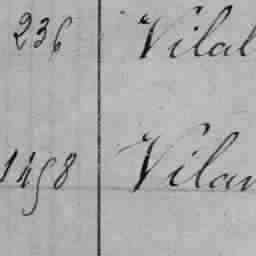 236 Vilal
1498 Vilan